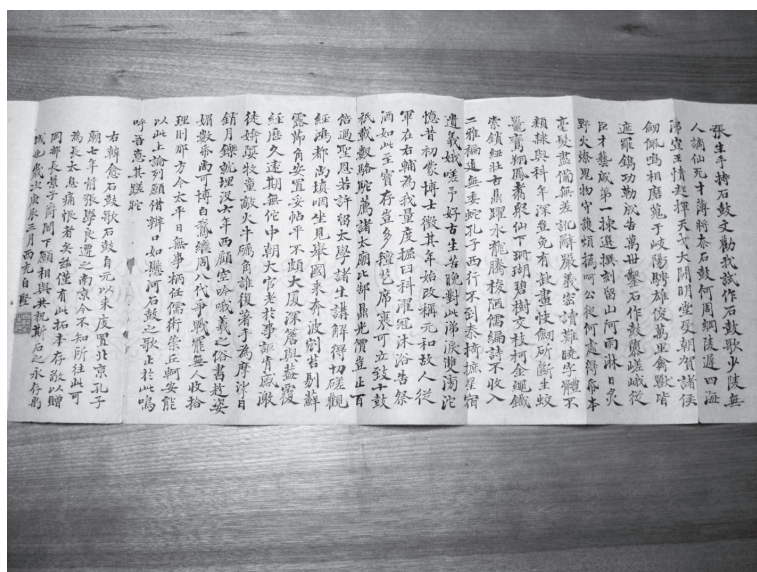 張生手持石鼓文勸我試作石鼓歌少陵無
人謫仙死才薄將柰石鼓何周綱陵遲四海
沸宣王憤起揮天戈大開明堂受朝賀諸侯
劍佩鳴相磨蒐于岐陽騁雄俊萬里禽獸皆
遮羅鐫功勒成告萬世鑿石作鼓隳嵯峨從
臣才藝咸第一揀選撰刻留山阿雨淋日炙
野火燎鬼物守護煩撝呵公從何處得紙本
毫髮盡備無差訛辭嚴義密讀難曉字體不
類隸與科年深豈免有缺畫快劍斫斷生蛟
鼉鸞翔鳳翥衆仙下珊瑚碧樹交枝柯金繩鐵
索鎖紐壯古鼎躍水龍騰梭陋儒編詩不收入
二雅褊迫無委蛇孔子西行不到秦掎摭星宿
遺羲娥嗟予好古生苦晚對此涕淚雙滂沱
憶昔初蒙博士徵其年始改稱元和故人從
軍在右輔為我量度掘臼科濯冠沐浴告祭
酒如此至寶存豈多氊苞席裹可立致十鼓
祇載數駱駝薦諸太廟比郜鼎光價豈止百
倍過聖恩若許留太學諸生講解得切磋觀
經鴻都尚填咽坐見舉國來奔波剜苔剔蘚
露節角安置妥帖平不頗大厦深簷與蓋覆
經歷久遠期無佗中朝大官老於事詎肯感激
徒媕娿牧童敲火牛礪角誰復著手為摩挲日
銷月鑠就埋沒六年西顧空吟哦羲之俗書趁姿
媚數紙尚可博白鵞繼周八代爭戰罷無人收拾
理則那方今太平日無事柄任儒術崇丘軻安能
以此上論列願借辨口如懸河石鼓之歌止於此嗚
呼吾意其蹉跎
右韓愈石鼓歌石鼓自元以來度置北京孔子
廟七年前張學良遷之南京今不知所往此可
為長太息痛恨者矣謹僅有此拓本存敬以贈
岡部長景子爵閣下願相與共祝斯石之永存於
城也歲次庚辰三月